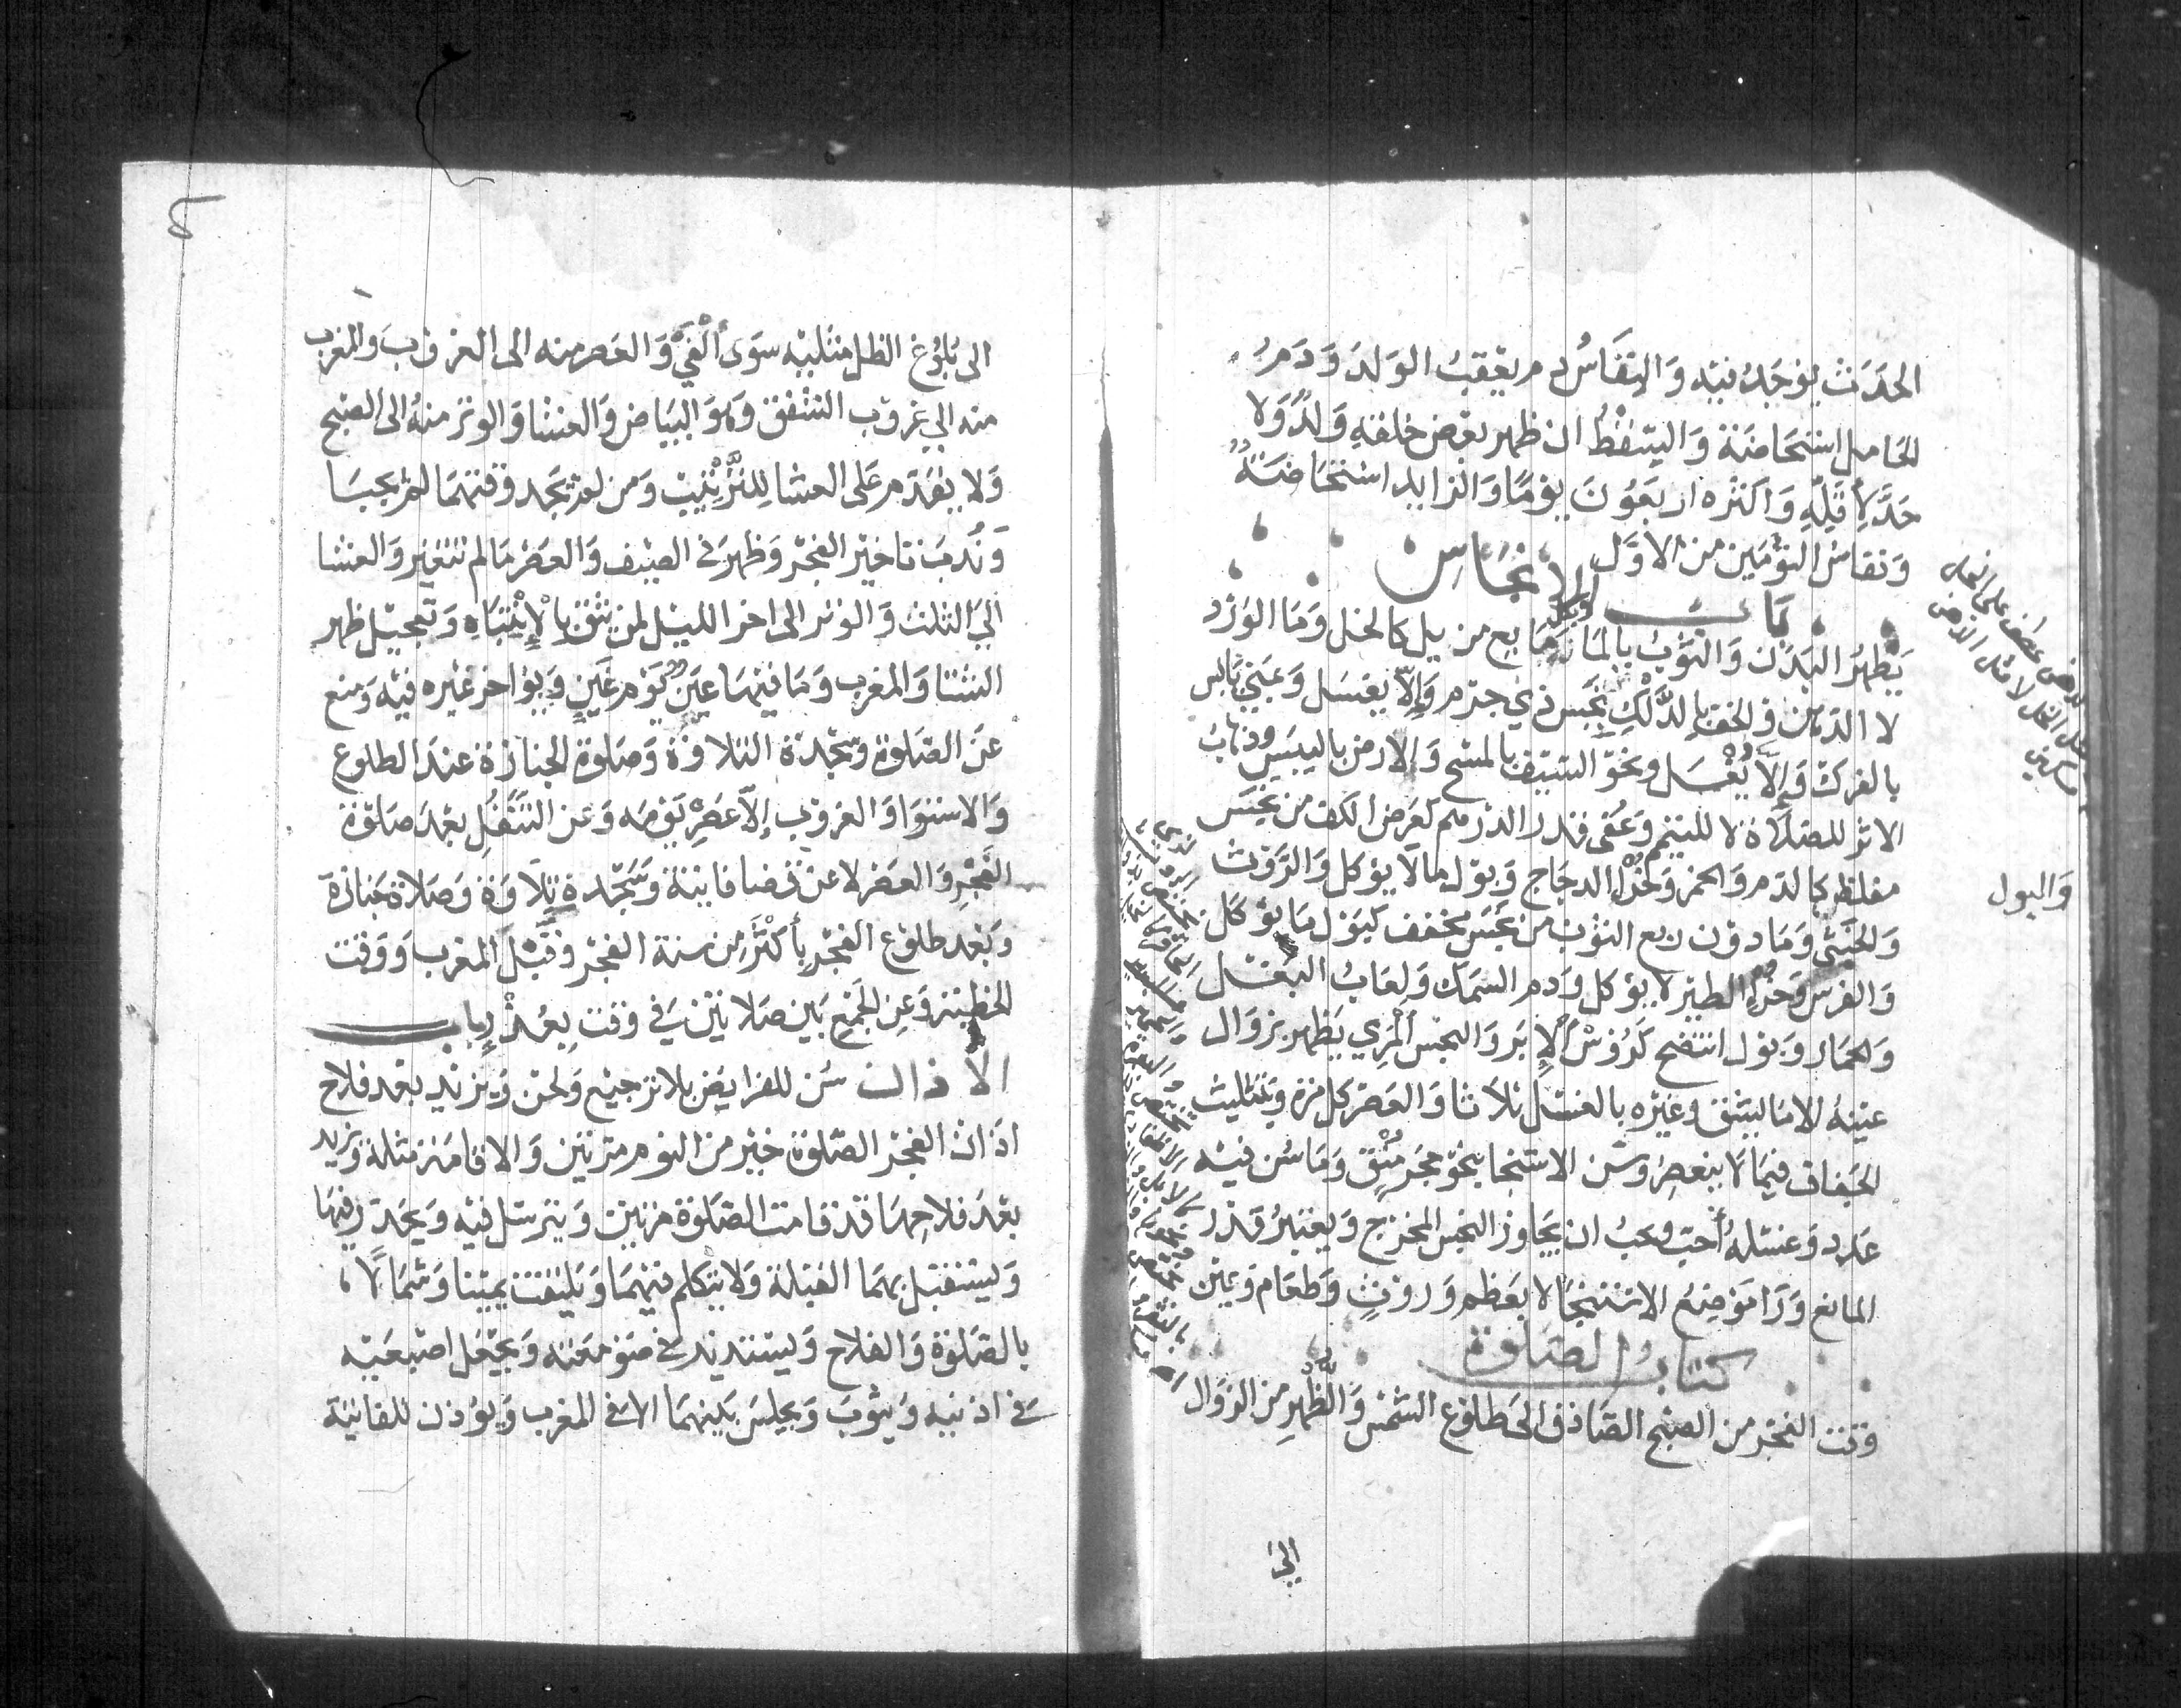 الحدث يوجد فيه والنفاس دم يعقب الولد ودم
الحامل استحاضة والسقط ان ظهر بعض خلقه ولد ولا
حد لأقله واكثره اربعون يوما والزايد استحاضة
ونفاس التؤمين من الاول
باب الانجاس
يطهر البدن والثوب بالماء وبكل مايع مزيل كالخل وما الورد
لا الدهن والخف بالدلك بنجس ذي جرم والا يغسل وبمني يابس
بالفرك والا يغسل ونحو السيف بالمسح والارض باليبس وذهاب
الاثر للصلاة لا للتيمم وعفى قدر الدرهم كعرض الكف من نجس
مغلظ كالدم والخمر وخرء الدجاج وبول مالا يؤكل والروث
والخثى وما دون ربع الثوب من نجس مخفف كبول ما يؤكل
والفرس وخرء الطير لا يؤكل ودم السمك ولعاب البغل
والحمار وبول انتضح كرؤس الابر والنجس المري يطهر بزوال
عينه الا ما ليشق وغيره بالغسل ثلاثا والعصر كل مرة وبتثليث
الجفاف فيما لا ينعصر وسن الاستنجا بنحو حجر منق وما سن فيه
عدد وغسله أحب ويجب ان يجاوز النجس المخرج ويعتبر قدر
المانع ورا موضع الاستنجا لا بعظم وروث وطعام ويمين
كتاب الصلوة
وقت الفجر من الصبح الصادق الى طلوع الشمس والظهر من الزوال
الى
والبول
الى بلوغ الظل مثليه سوى الفيء والعصر منه الى الغروب والمغرب
منه الي غروب الشفق وهو البياض والعشا والوتر منه الى الصبح
ولا يقدم على العشا للترتيب ومن لم يجد وقتهما لم يجبا
وندب تاخير الفجر وظهر في الصيف والعصر مالم تتغير والعشا
الي الثلث والوتر الى اخر الليل لمن يثق بالانتباه وتعجيل ظهر
الشتا والمغرب وما فيها عين يوم غين ويؤاخر غيره فيه ومنع
عن الصلوة وسجدة التلاوة وصلوة الجنازة عند الطلوع
والاستوا والغروب إلا عصر يومه وعن التنفل بعد صلوة
الفجر والعصر لا عن قضا فايتة وسجدة تلاوة وصلاة جنازة
وبعد طلوع الفجر بأكثر من سنة الفجر وقبل المغرب ووقت
الخطبة وعن الجمع بين صلاتين في وقت بعذر باب
الاذان سن للفرايض بلا ترجيع ولحن ويزيد بعد فلاح
اذان الفجر الصلوة خير من النوم مرتين والاقامة مثله ويزيد
بعد فلاحها قد قامت الصلوة مرتين ويترسل فيه ويحدر فيها
ويستقبل بهما القبلة ولا يتكلم فيهما ويلتفت يمينا وشمالا
بالصلوة والفلاح ويستدير في صومعته ويجعل اصبعيه
في اذنيه ويثوب ويجلس بينهما الا في المغرب ويؤذن للفائتة